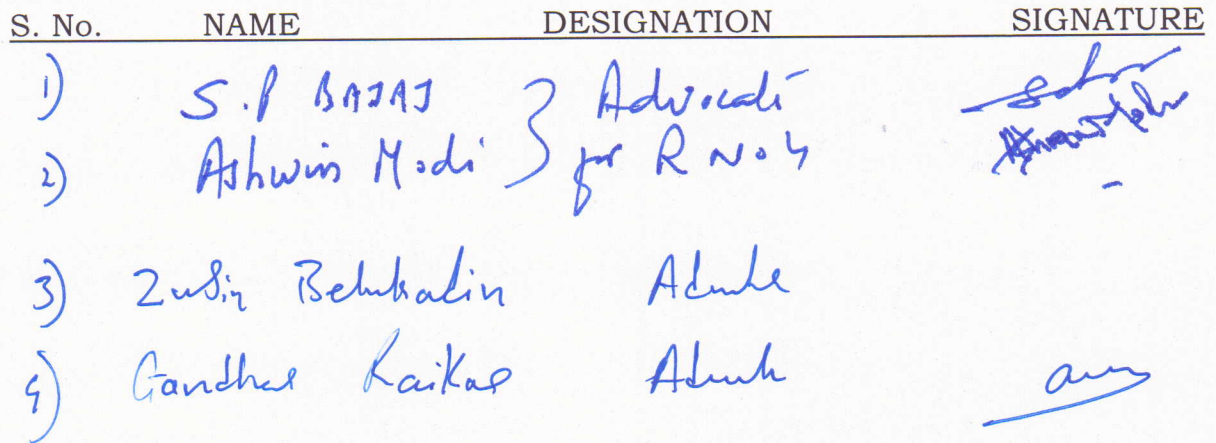 S. No. NAME DESIGNATION SIGNATURE
1) S.P BAJAJ } Advocate
2) Ashwin Modi for R No 4
3) Zubin Behkalin Advocate
4) Gandhar Raikar Advocate